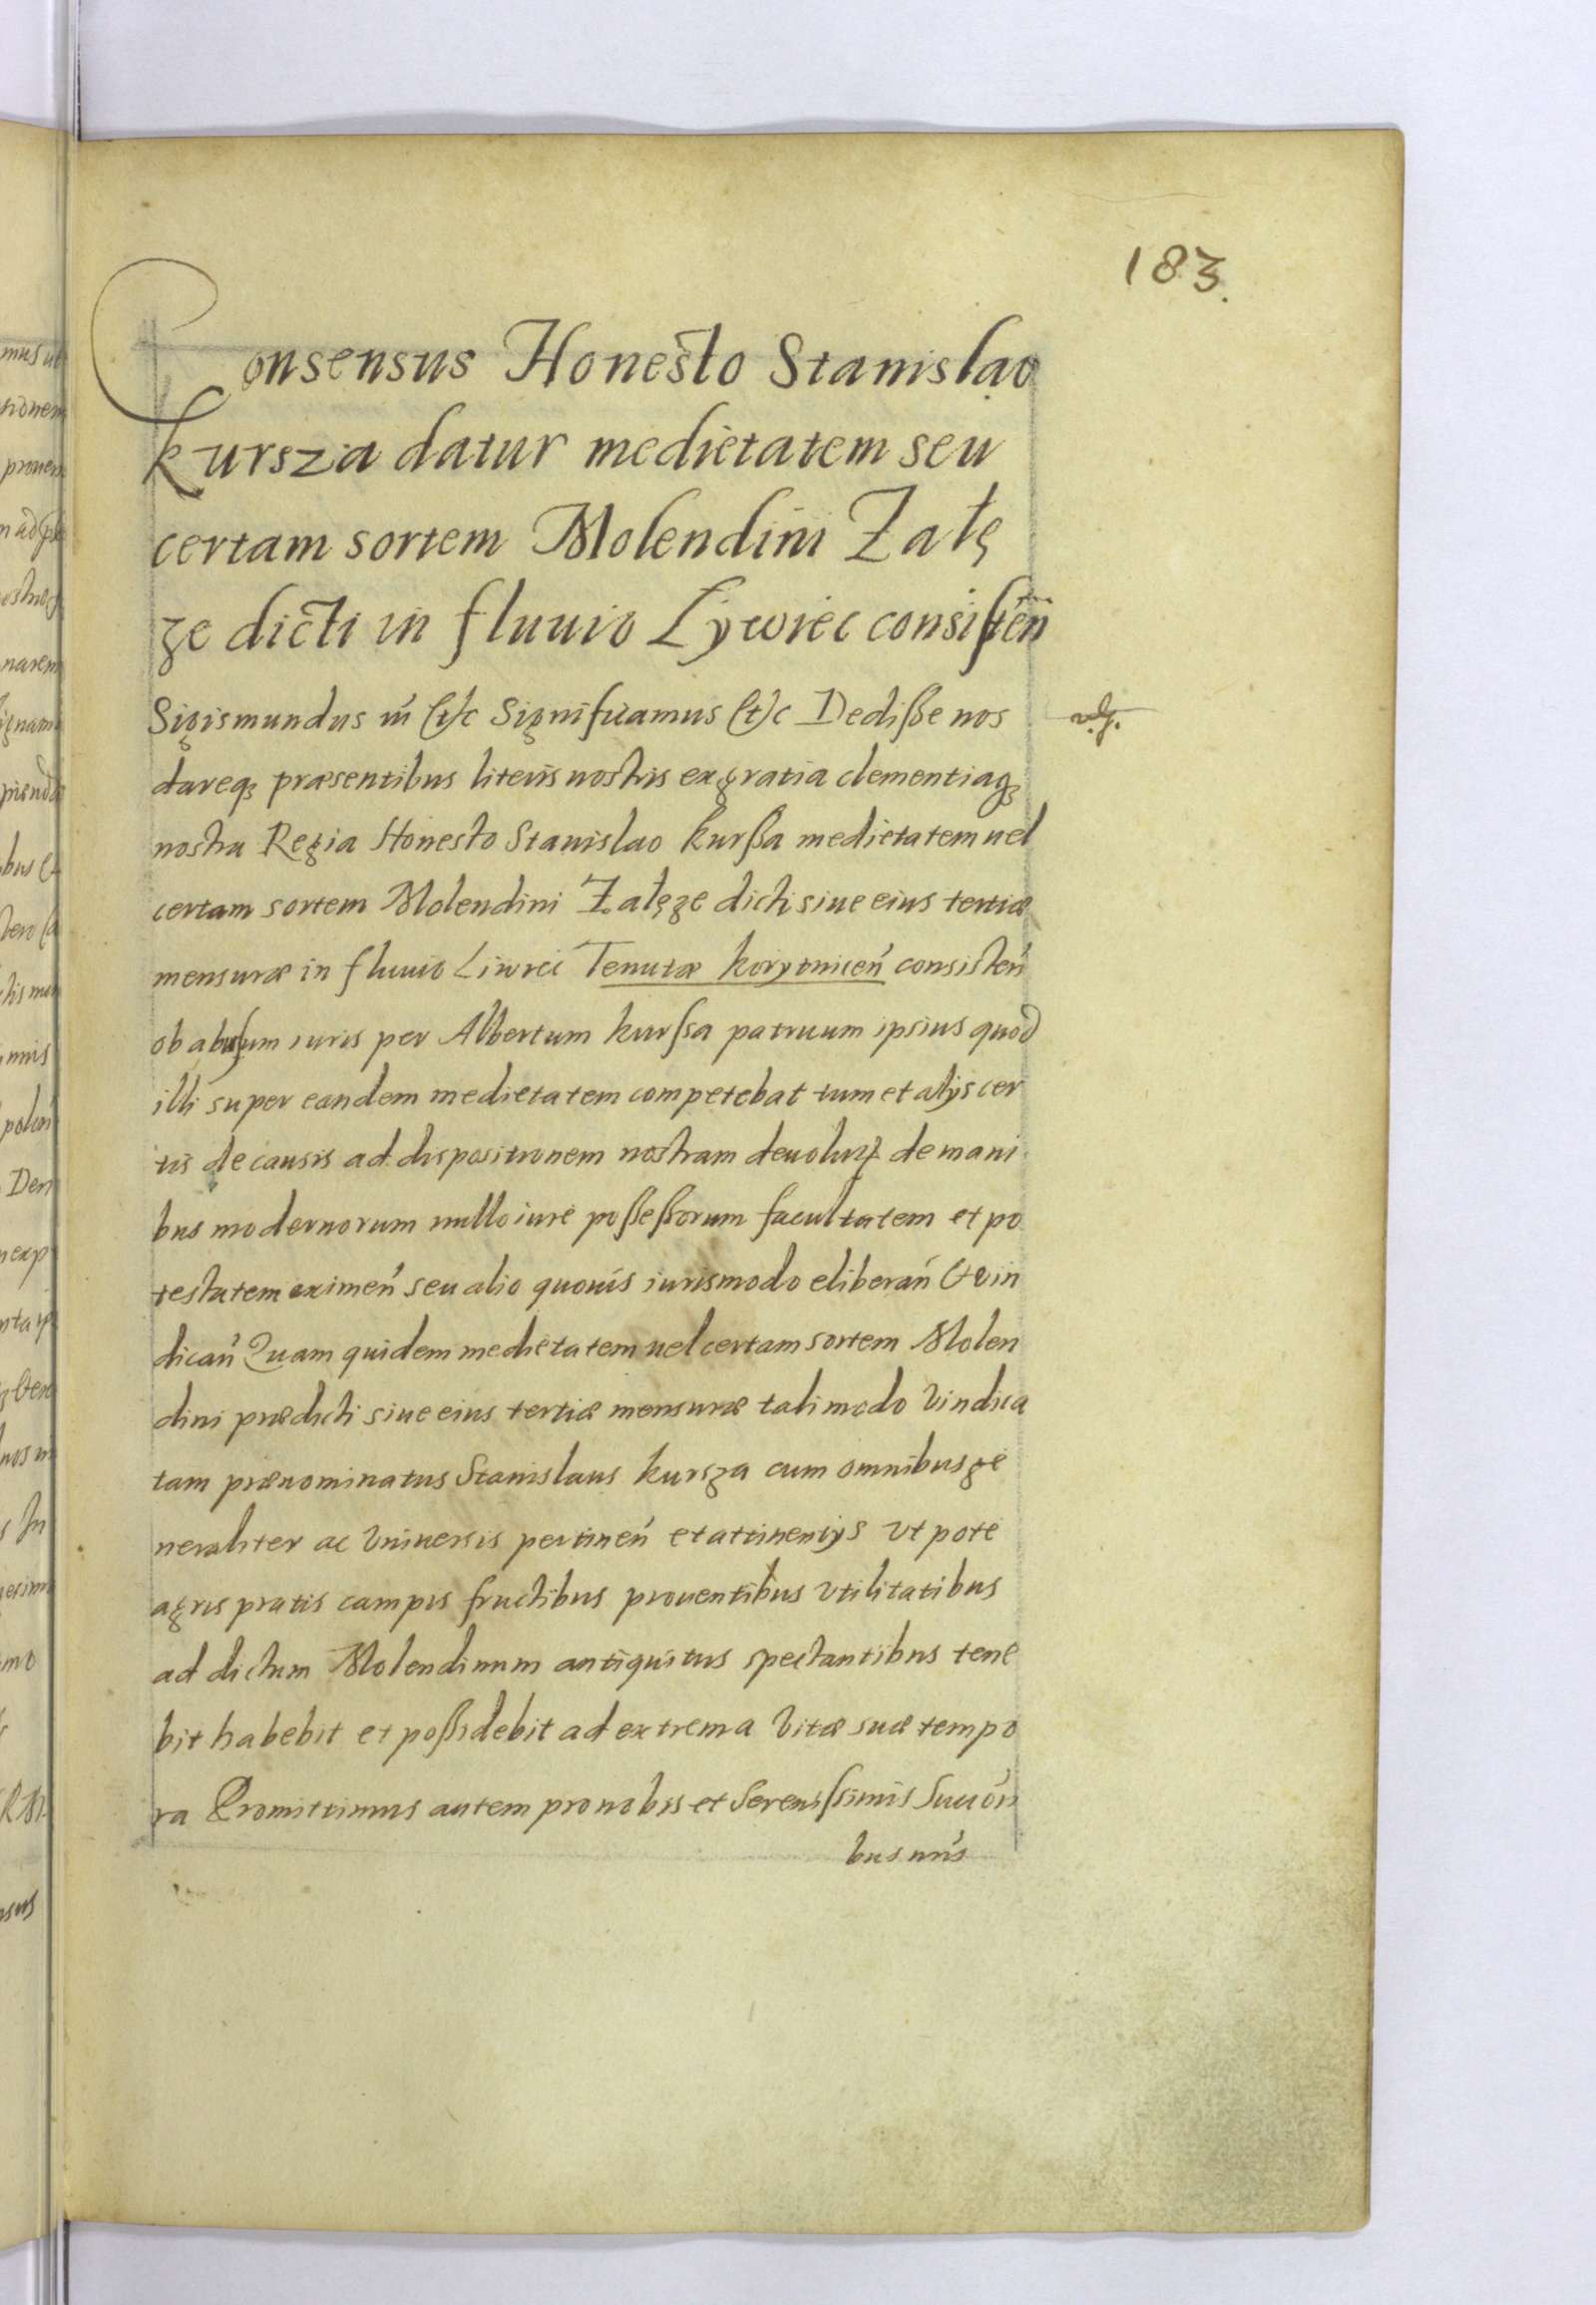 183.
Consensus Honesto Stanislao
Kursza datur medietatem seu
certam sortem Molendini Załę
ze dicti in fluuio Lywiec consisteñ
Sigismundus iii &c Significamus &c Dediße nos
dareq₃ præsentibus literis nostris ex gratia clementiaq₃
nostra Regia Honesto Stanislao Kurßa medietatem uel
certam sortem Molendini Załęze dicti siue eius tertiæ
mensuræ in fluuio Liwiec Tenutæ Korytniceń consisteń
ob abusum iuris per Albertum Kurssa patruum ipsius quod
illi super eandem medietatem competebat tum et alijs cer
tis de causis ad dispositionem nostram deuolutꝭ de mani
bus modernorum nullo iure poßeßorum facultatem et po
testatem eximeń seu alio quouis iurismodo eliberań & vin
dicań Quam quidem medietatem uel certam sortem Molen
dini prædicti siue eius tertiæ mensuræ tali modo vindica
tam prænominatus Stanislaus Kursza cum omnibus ge
neraliter ac vniuersis pertineń et attinentijs vt pote
agris pratis campis fructibus prouentibus vtilitatibus
ad dictum Molendinum antiquitus spectantibus tene
bit habebit et poßidebit ad extrema vitæ suæ tempo
ra Promittimus autem pro nobis et Serenissimis Succori
bus nris